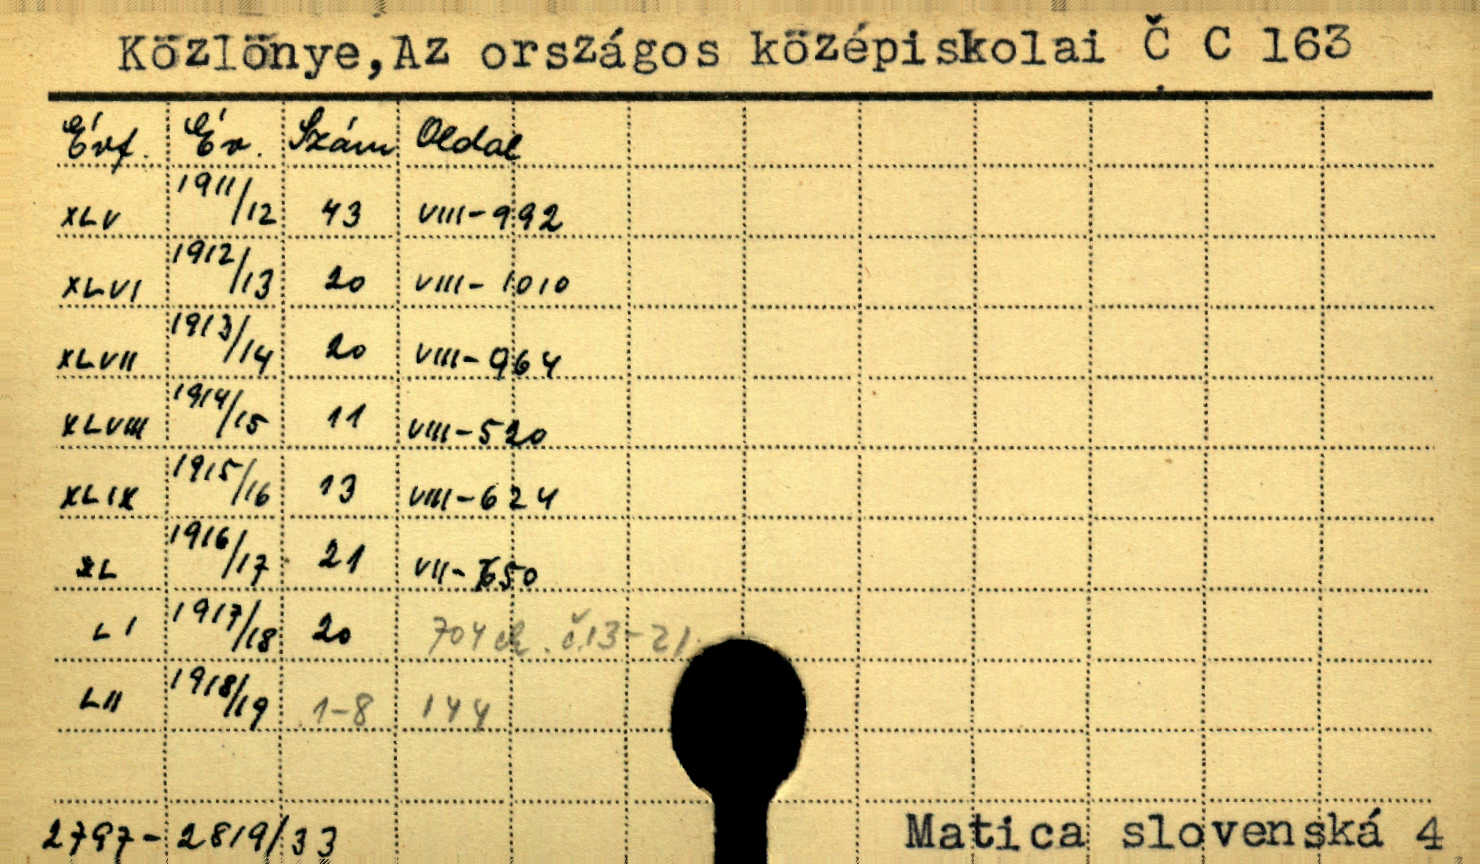 Közlönye,Az országos középiskolai Č C 163
Évf. Év. Szám Oldal
XLV 1911/12 43 VIII-992
XLVI 1912/13 20 VIII-1010
XLVII 1913/14 20 VIII-964
XLVIII 1914/15 11 VIII-520
XLIX 1915/16 13 VIII-624
XL 1916/17 21 VII-650
LI 1917/18 20 704 ch. č.13-21
LII 1918/19 1-8 144
2797-2819/33
Matica slovenská 4